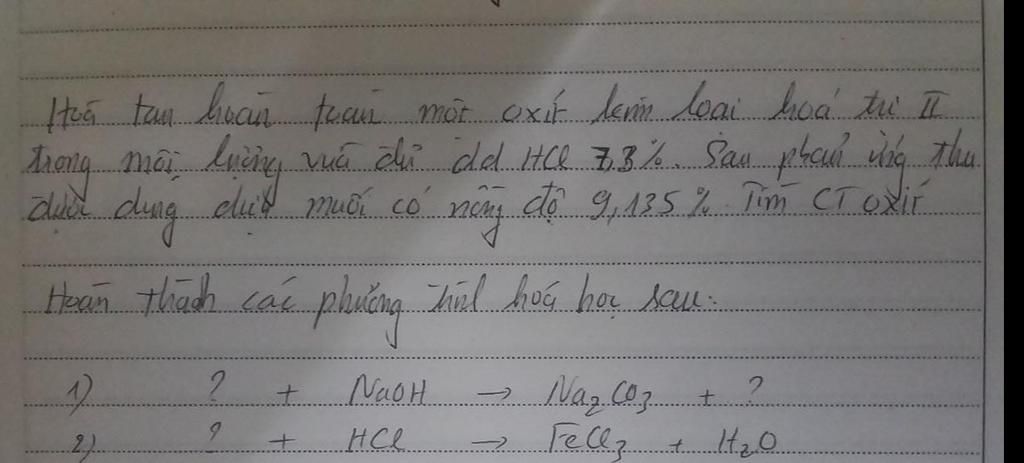 Hoà tan hoàn toàn một oxit kim loại hoá trị II
trong một lượng vừa đủ dd HCl 7,3%. Sau phản ứng thu
được dung dịch muối có nồng độ 9,135%. Tìm CT oxit
Hoàn thành các phương trình hoá học sau:
1) ? + NaOH → Na₂CO₃ + ?
2) ? + HCl → FeCl₃ + H₂O